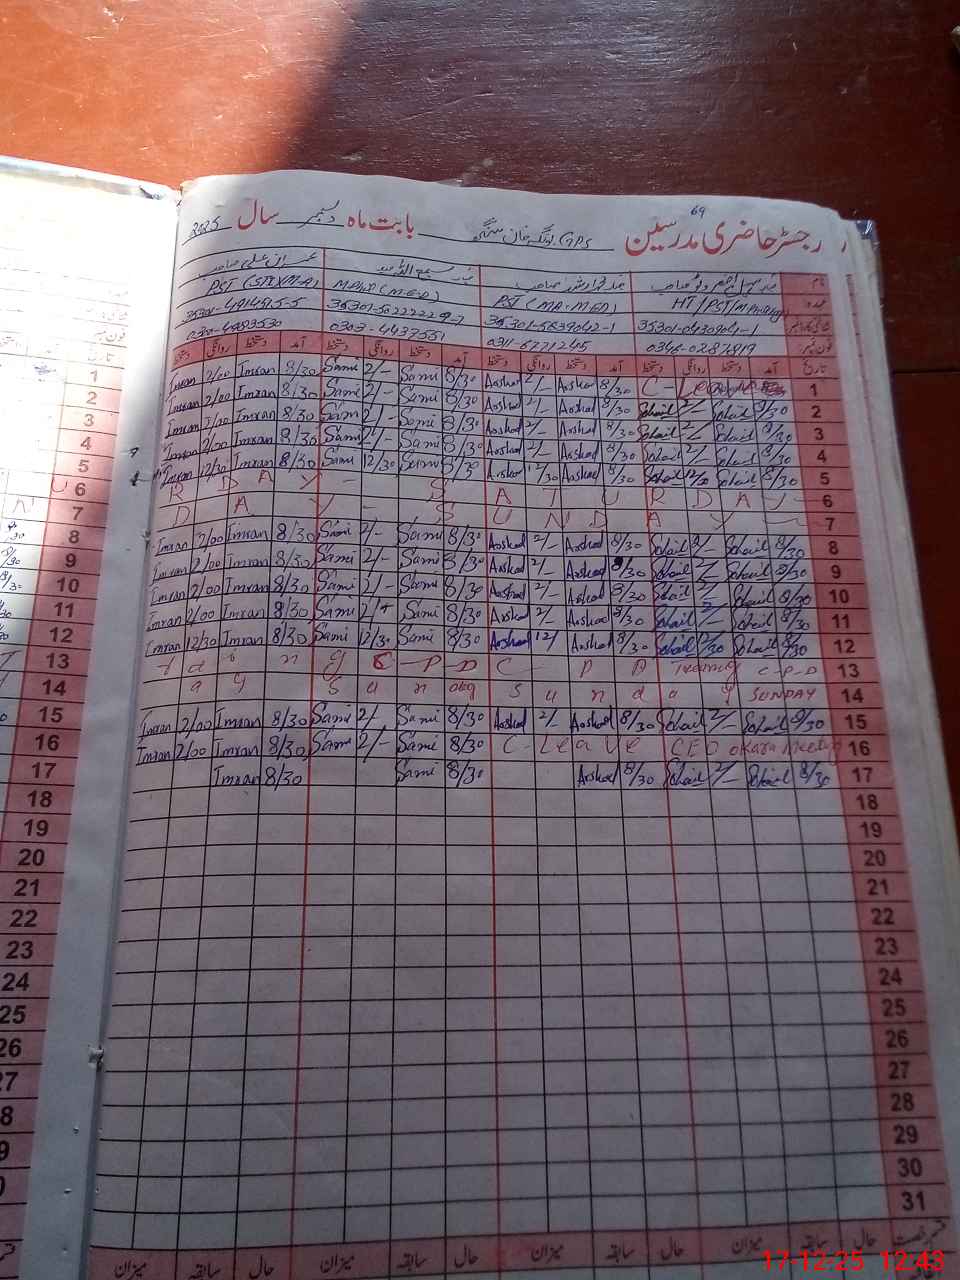 69
رجسٹر حاضری مدرسین GPS بابت ماہ دسمبر سال 2025
نام
PST MPhil (M.Ed) PST (MA-M.Ed) HT/PST/
35301-4914915-5 35301-5639042-1 35301-0430904-1
0303-4437551 0311-67712405 0346-0287819 فون نمبر
تاریخ آمد دستخط روانگی دستخط آمد دستخط روانگی دستخط آمد دستخط روانگی دستخط آمد دستخط روانگی دستخط
1 Imran 2/00 Imran 8/30 Sami 2/- Sami 8/30 Arshad 2/- Arshad 8/30 C - Leave 1
2 Imran 2/00 Imran 8/30 Sami 2/- Sami 8/30 Arshad 2/- Arshad 8/30 Sohail 2/- Sohail 8/30 2
3 Imran 2/00 Imran 8/30 Sami 2/- Sami 8/30 Arshad 2/- Arshad 8/30 Sohail 2/- Sohail 8/30 3
4 Imran 2/00 Imran 8/30 Sami 2/- Sami 8/30 Arshad 2/- Arshad 8/30 Sohail 2/- Sohail 8/30 4
5 Imran 12/30 Imran 8/30 Sami 12/30 Sami 8/30 Arshad 12/30 Arshad 8/30 Sohail 12/30 Sohail 8/30 5
6 R D A Y - S A T U R D A Y - 6
7 D A Y - S U N D A Y - 7
8 Imran 2/00 Imran 8/30 Sami 2/- Sami 8/30 Arshad 2/- Arshad 8/30 Sohail 2/- Sohail 8/30 8
9 Imran 2/00 Imran 8/30 Sami 2/- Sami 8/30 Arshad 2/- Arshad 8/30 Sohail 2/- Sohail 8/30 9
10 Imran 2/00 Imran 8/30 Sami 2/- Sami 8/30 Arshad 2/- Arshad 8/30 Sohail 2/- Sohail 8/30 10
11 Imran 2/00 Imran 8/30 Sami 2/- Sami 8/30 Arshad 2/- Arshad 8/30 Sohail 2/- Sohail 8/30 11
12 Imran 12/30 Imran 8/30 Sami 12/30 Sami 8/30 Arshad 12/ Arshad 8/30 Sohail 12/30 Sohail 8/30 12
13 n g C P D C - P D Training C-P-D 13
14 a y S u n day S u n d a y SUNDAY 14
15 Imran 2/00 Imran 8/30 Sami 2/- Sami 8/30 Arshad 2/- Arshad 8/30 Sohail 2/- Sohail 8/30 15
16 Imran 2/00 Imran 8/30 Sami 2/- Sami 8/30 C - Leave CEO okara Meeting 16
17 Imran 8/30 Sami 8/30 Arshad 8/30 Sohail 2/- Sohail 8/30 17
18 18
19 19
20 20
21 21
22 22
23 23
24 24
25 25
26 26
27 27
28
29
30
31
حال سابقہ میزان حال سابقہ میزان حال سابقہ میزان حال سابقہ میزان
17-12-25 12:43